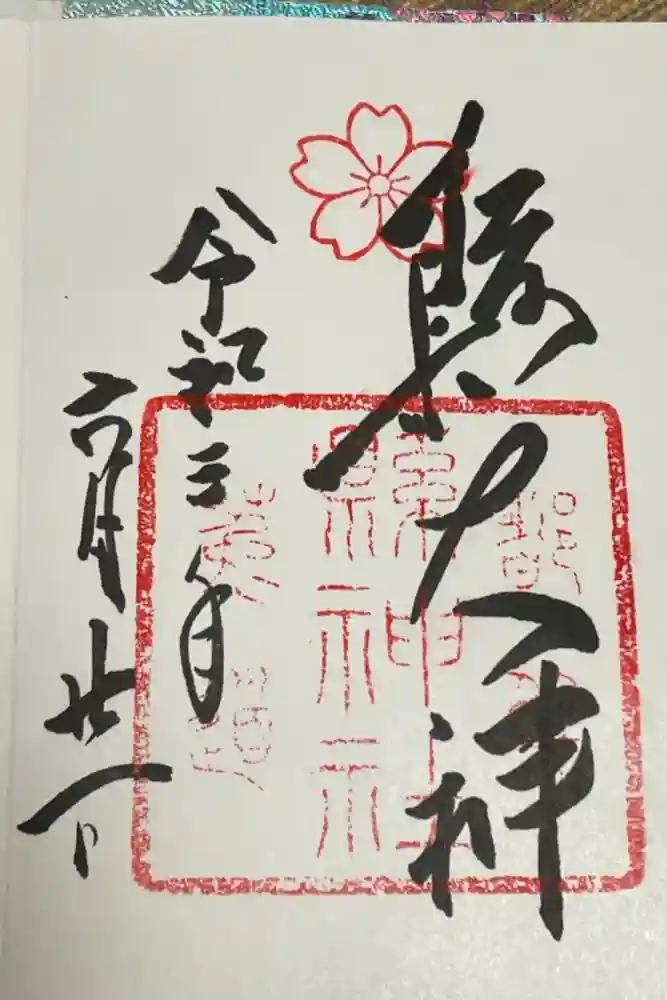 縣大神
令和三年
六月廿一日
縣神社